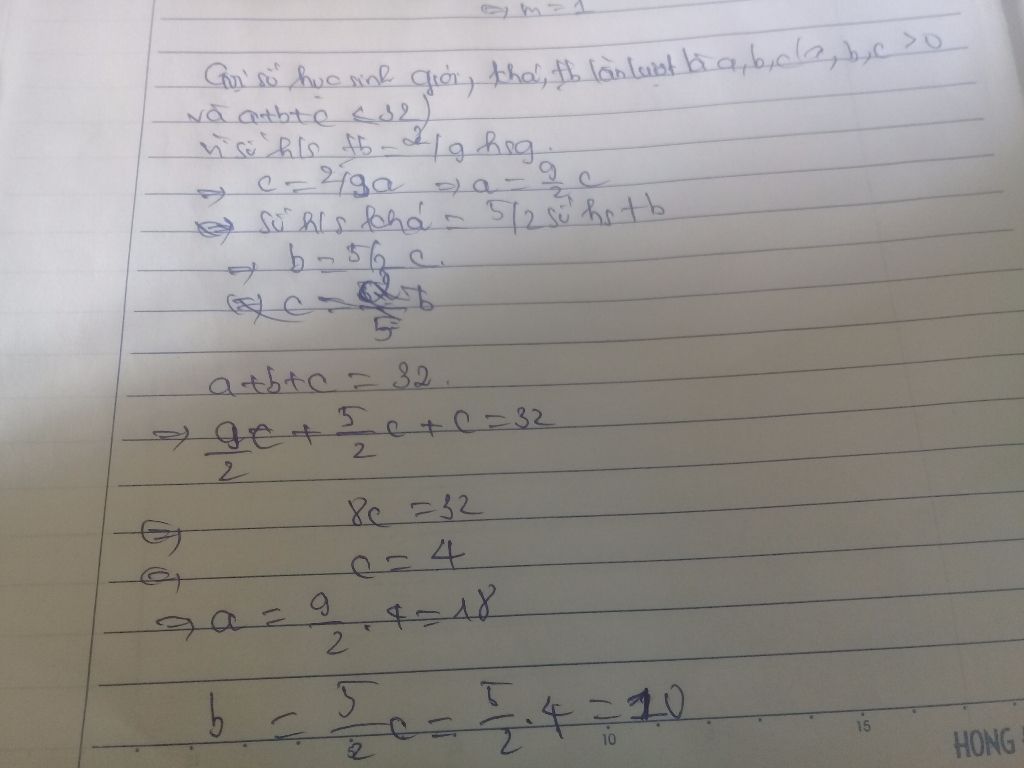 ⇒ m = 1
Gọi số học sinh giỏi, khá, tb lần lượt là a, b, c (a, b, c > 0
và a+b+c < 32)
vì số h/s tb = 2/9 hsg.
⇒ c = 2/9a ⇒ a = 9/2 c
⇒ số h/s khá = 5/2 số hs tb
⇒ b = 5/2 c.
a+b+c = 32.
⇒ 9/2 c + 5/2 c + c = 32
⇔ 8c = 32
⇔ c = 4
⇒ a = 9/2 . 4 = 18
b = 5/2 c = 5/2 . 4 = 10
10 15
HONG